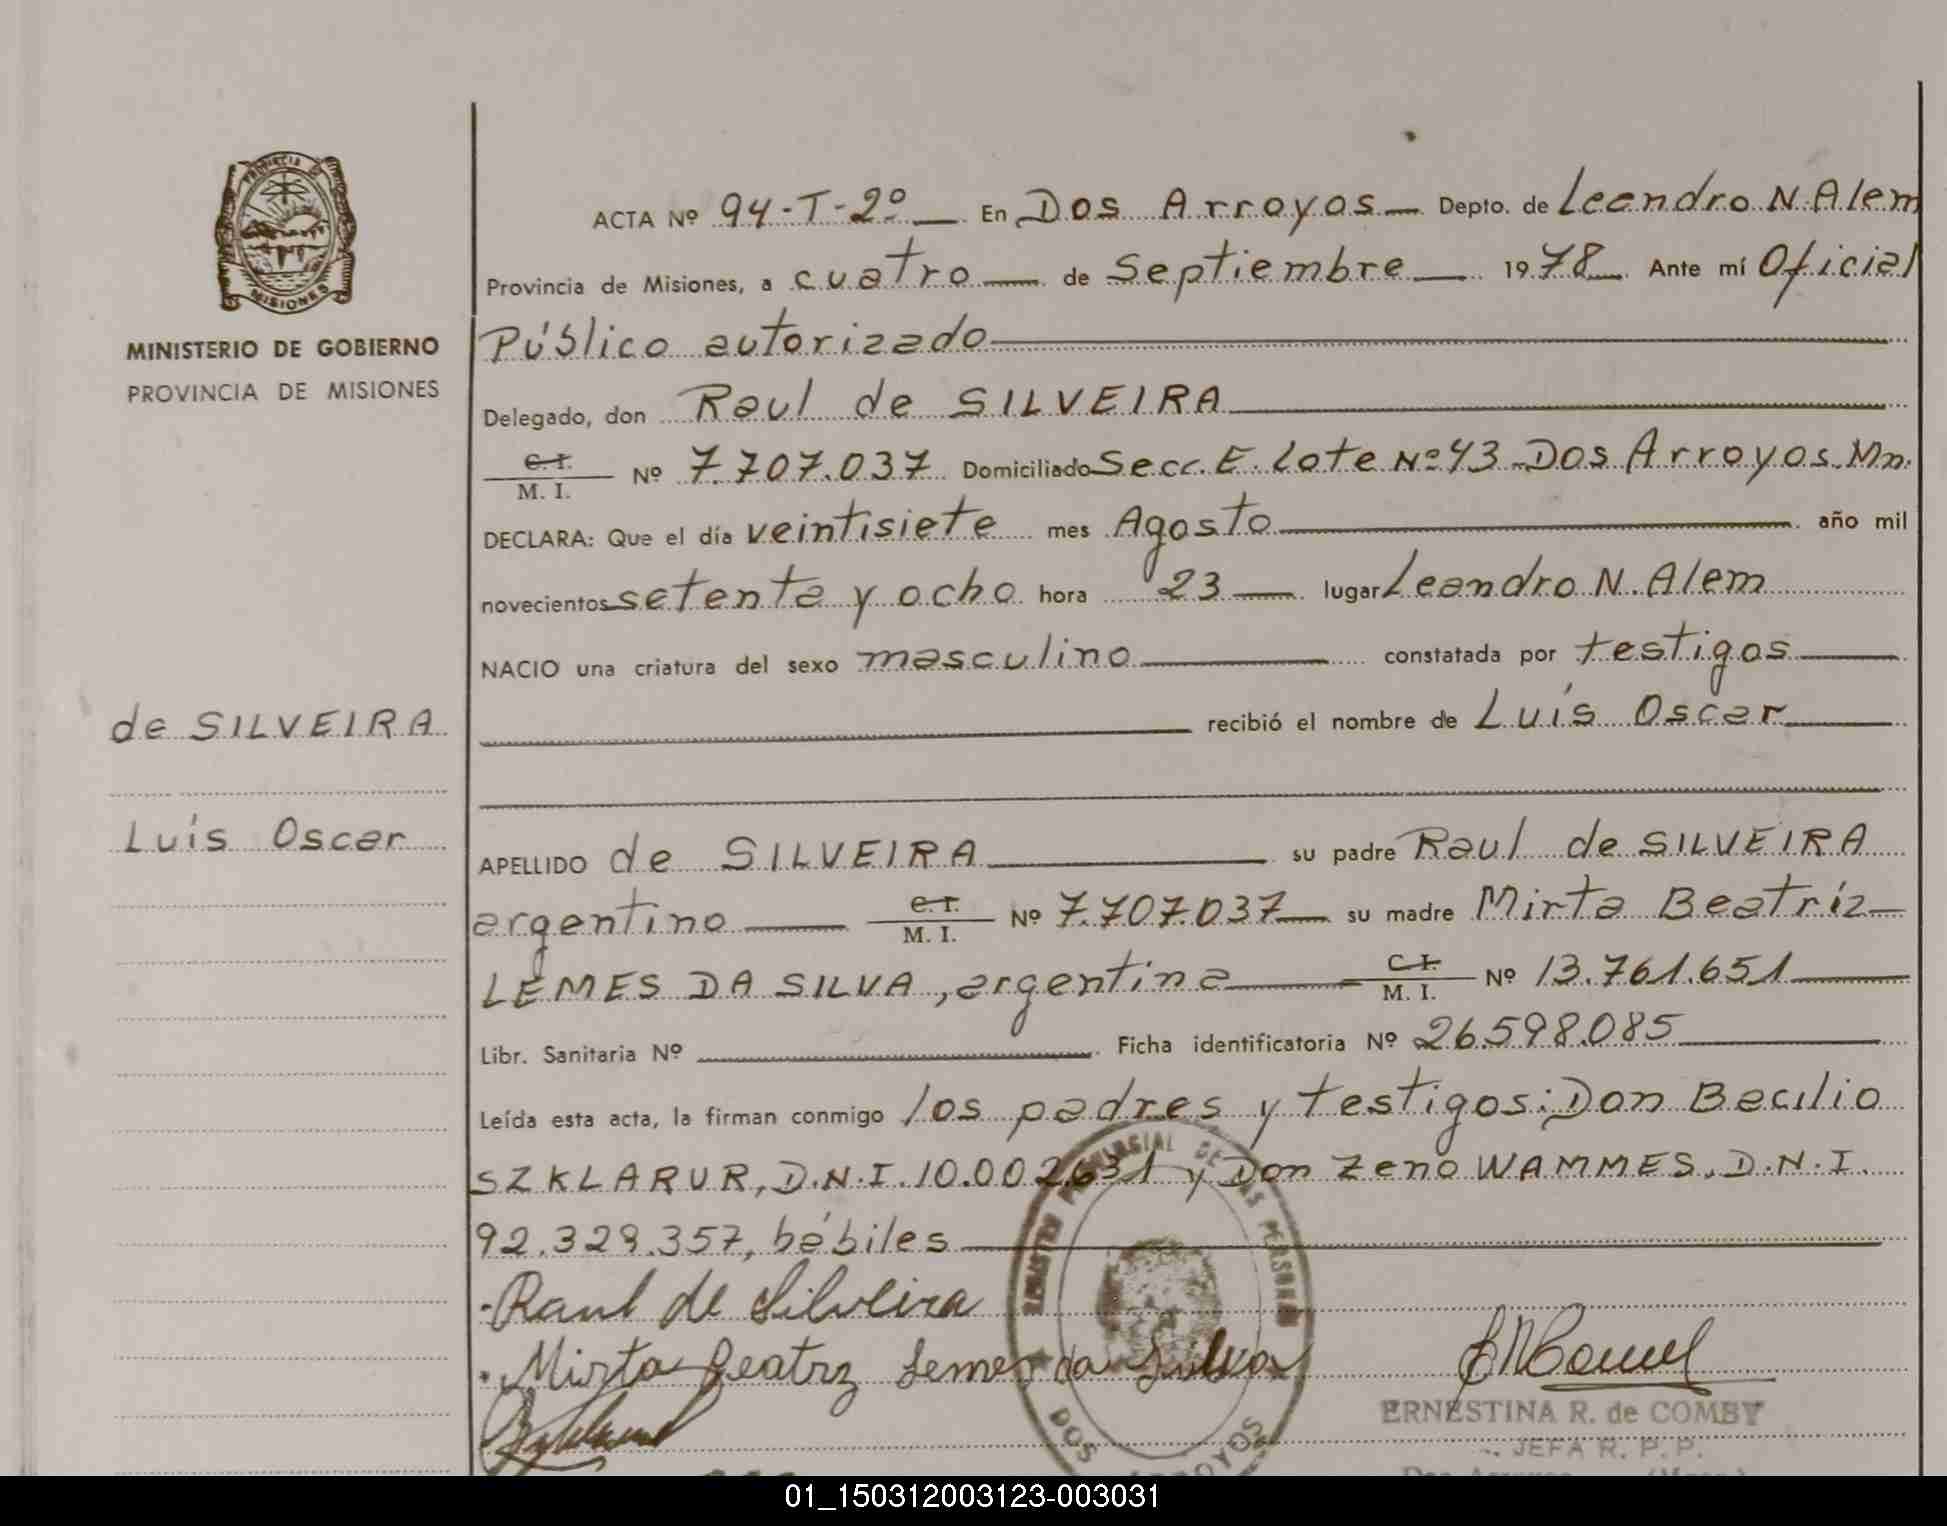 PROVINCIA DE
MISIONES
MINISTERIO DE GOBIERNO
PROVINCIA DE MISIONES
de SILVEIRA
Luis Oscar
ACTA Nº 94-T-2º En Dos Arroyos Depto. de Leandro N. Alem
Provincia de Misiones, a cuatro de Septiembre 1978 Ante mí Oficial
Público autorizado
Delegado, don Raul de SILVEIRA
C. I.
M. I. Nº 7.707.037 Domiciliado Secc. E. Lote Nº 43 Dos Arroyos. Mn.
DECLARA: Que el día veintisiete mes Agosto año mil
novecientos setenta y ocho hora 23 lugar Leandro N. Alem
NACIO una criatura del sexo masculino constatada por testigos
recibió el nombre de Luís Oscar
APELLIDO de SILVEIRA su padre Raul de SILVEIRA
argentino C. I. M. I. Nº 7.707.037 su madre Mirta Beatríz
LEMES DA SILVA, argentina C. I. M. I. Nº 13.761.651
Libr. Sanitaria Nº Ficha identificatoria Nº 26.598.085
Leída esta acta, la firman conmigo los padres y testigos: Don Bacilio
SZKLARUR, D.N.I. 10.002.631 y Don Zeno WAMMES, D.N.I.
92.329.357, hábiles
Raul de Silveira
Mirta Beatrz Lemes da Silva
REGISTRO PROVINCIAL DE LAS PERSONAS
DOS ARROYOS
ERNESTINA R. de COMBY
JEFA R. P. P.
01_150312003123-003031